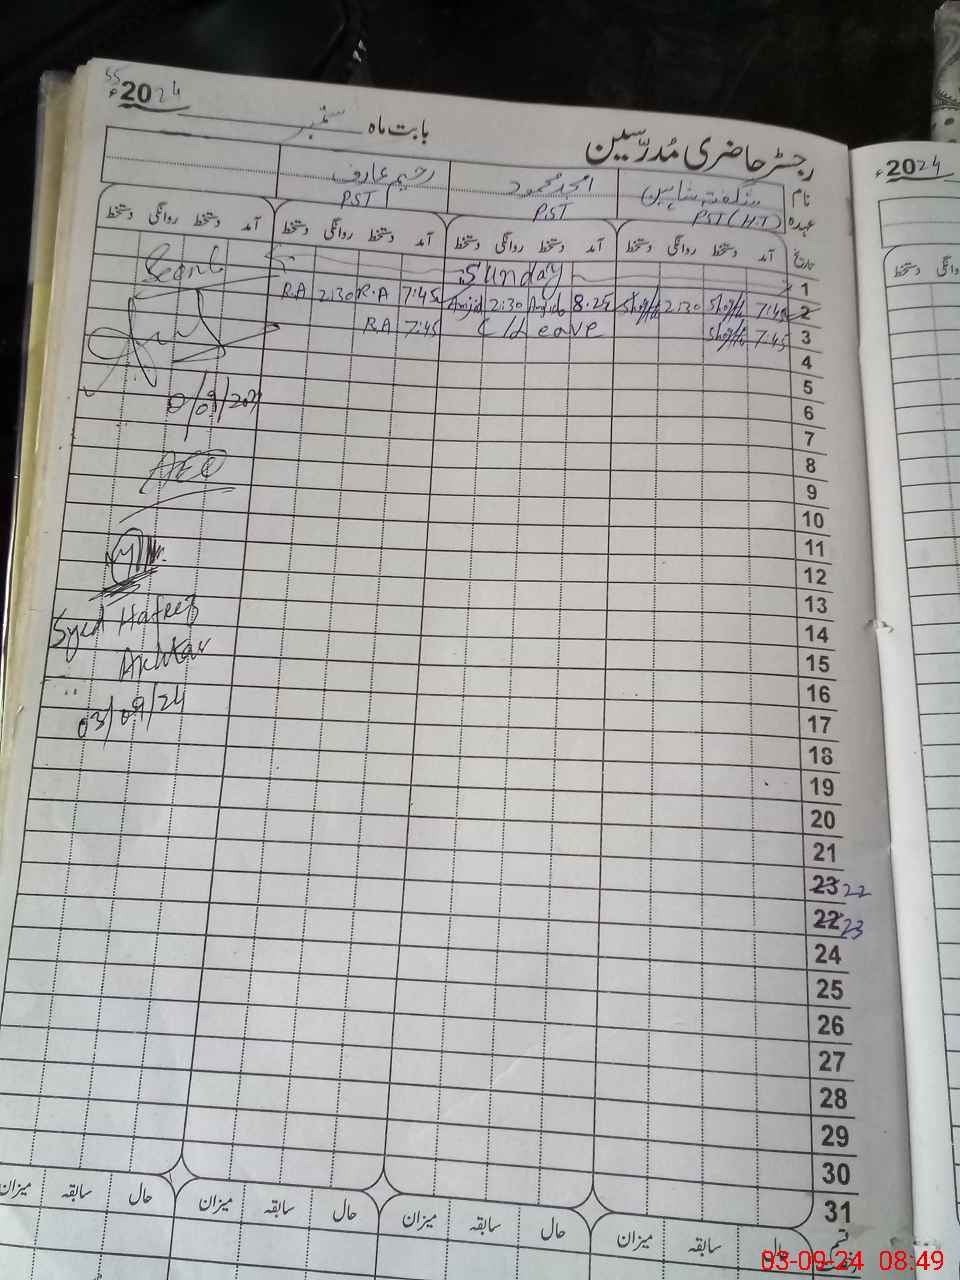 55
2024ء
بابت ماہ ستمبر
رجسٹر حاضری مُدرّسین
2024ء
نام شگفتہ شاہین امجد محمود رحیم عارف
عہدہ PST (H.T) PST PST
تاریخ آمد دستخط روانگی دستخط آمد دستخط روانگی دستخط آمد دستخط روانگی دستخط آمد دستخط روانگی دستخط
دستخط
1 Sunday
2 7:45 2:30 8:25 Amjad 2:30 Amjad 7:45 R.A 2:30 R.A
3 7:45 C/Leave 7:45 R.A
4
5
6
7
8
9
10
11
12
13
14
15
16
17
18
19
20
21
23 22
22 23
24
25
26
27
28
29
30
31
AEO
Syed Hafeez
Akhtar
03/09/24
حال سابقہ میزان حال سابقہ میزان حال سابقہ میزان حال سابقہ میزان
03-09-24 08:49